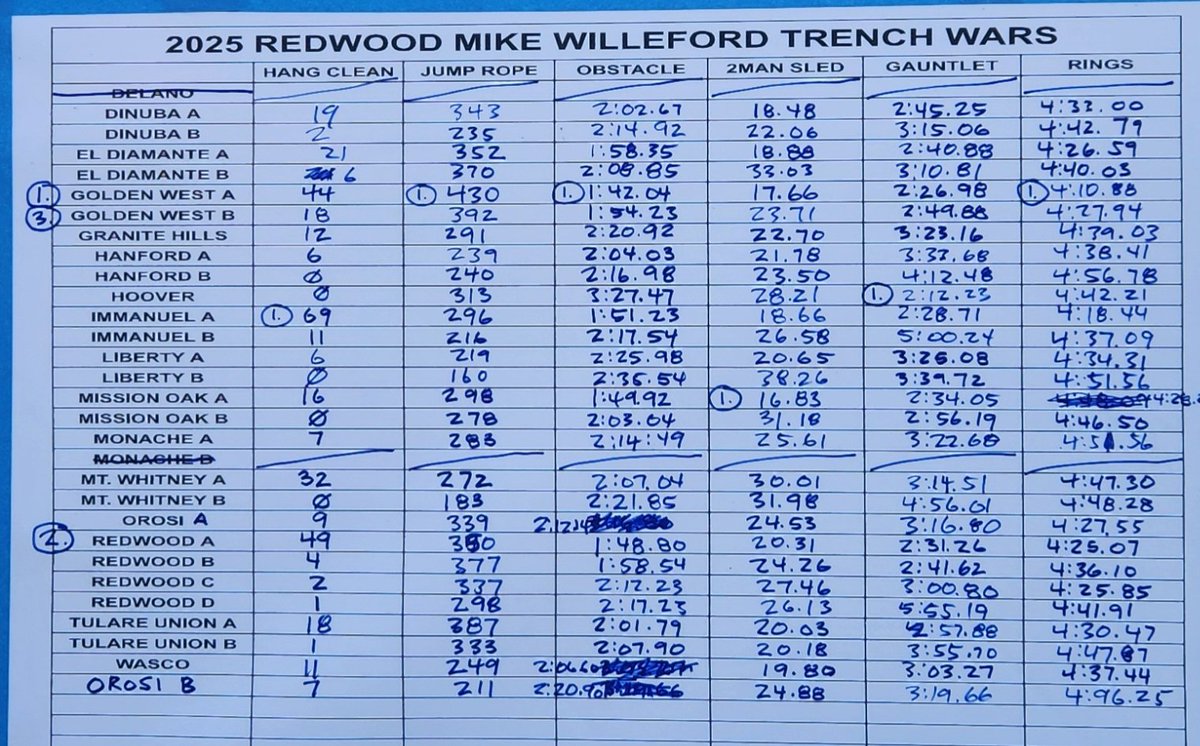 2025 REDWOOD MIKE WILLEFORD TRENCH WARS
HANG CLEAN JUMP ROPE OBSTACLE 2MAN SLED GAUNTLET RINGS
DELANO
DINUBA A 19 343 2:02.67 18.48 2:45.25 4:33.00
DINUBA B 2 235 2:14.92 22.06 3:15.06 4:42.79
EL DIAMANTE A 21 352 1:58.35 18.88 2:40.88 4:26.59
EL DIAMANTE B 6 370 2:08.85 33.03 3:10.81 4:40.03
1. GOLDEN WEST A 44 1. 430 1. 1:42.04 17.66 2:26.98 1. 4:10.88
3. GOLDEN WEST B 18 392 1:54.23 23.71 2:49.88 4:27.94
GRANITE HILLS 12 291 2:20.92 22.70 3:23.16 4:39.03
HANFORD A 6 239 2:04.03 21.78 3:37.68 4:38.41
HANFORD B 0 240 2:16.98 23.50 4:12.48 4:56.78
HOOVER 0 313 3:27.47 28.21 1. 2:12.23 4:42.21
IMMANUEL A 1. 69 296 1:51.23 18.66 2:28.71 4:18.44
IMMANUEL B 11 216 2:17.54 26.58 5:00.24 4:37.09
LIBERTY A 6 219 2:25.98 20.65 3:26.08 4:34.31
LIBERTY B 0 160 2:36.54 38.26 3:39.72 4:51.56
MISSION OAK A 16 298 1:49.92 1. 16.83 2:34.05
MISSION OAK B 0 278 2:03.04 31.18 2:56.19 4:46.50
MONACHE A 7 283 2:14:49 25.61 3:22.68 4:51.56
MONACHE B
MT. WHITNEY A 32 272 2:07.04 30.01 3:14.51 4:47.30
MT. WHITNEY B 0 183 2:21.85 31.98 4:56.01 4:48.28
OROSI A 9 339 24.53 3:16.80 4:27.55
2. REDWOOD A 49 380 1:48.80 20.31 2:31.26 4:25.07
REDWOOD B 4 377 1:58.54 24.26 2:41.62 4:36.10
REDWOOD C 2 337 2:12.23 27.46 3:00.80 4:25.85
REDWOOD D 1 298 2:17.23 26.13 5:55.19 4:41.91
TULARE UNION A 18 387 2:01.79 20.03 2:57.88 4:30.47
TULARE UNION B 1 333 2:07.90 20.18 3:55.70 4:47.87
WASCO 11 249 2:06.60 19.80 3:03.27 4:37.44
OROSI B 7 211 2:20.90 24.88 3:19.66 4:96.25